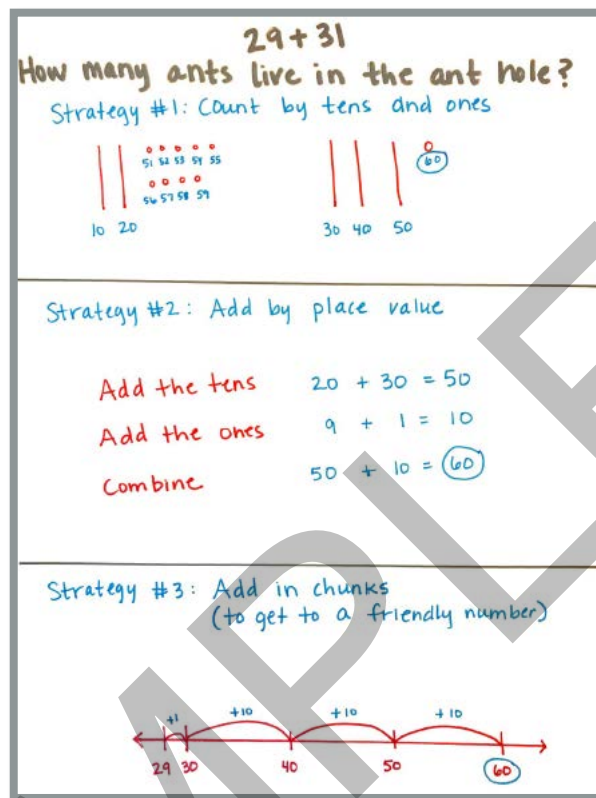 29+31
How many ants live in the ant hole?
Strategy #1: Count by tens and ones
51 52 53 54 55
60
56 57 58 59
10 20
30 40 50
Strategy #2: Add by place value
Add the tens 20 + 30 = 50
Add the ones 9 + 1 = 10
Combine 50 + 10 = 60
Strategy #3: Add in chunks
(to get to a friendly number)
+1 +10 +10 +10
29 30 40 50 60